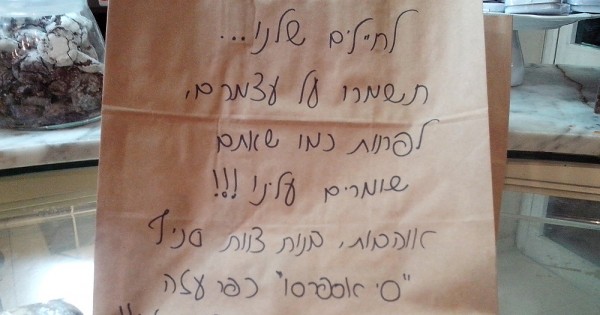 לחיילים שלנו...
תשמרו על עצמכם,
לפחות כמו שאתם
שומרים עלינו!!!
אוהבות, בנות צוות סניף
"סי אספרסו" כפר עזה